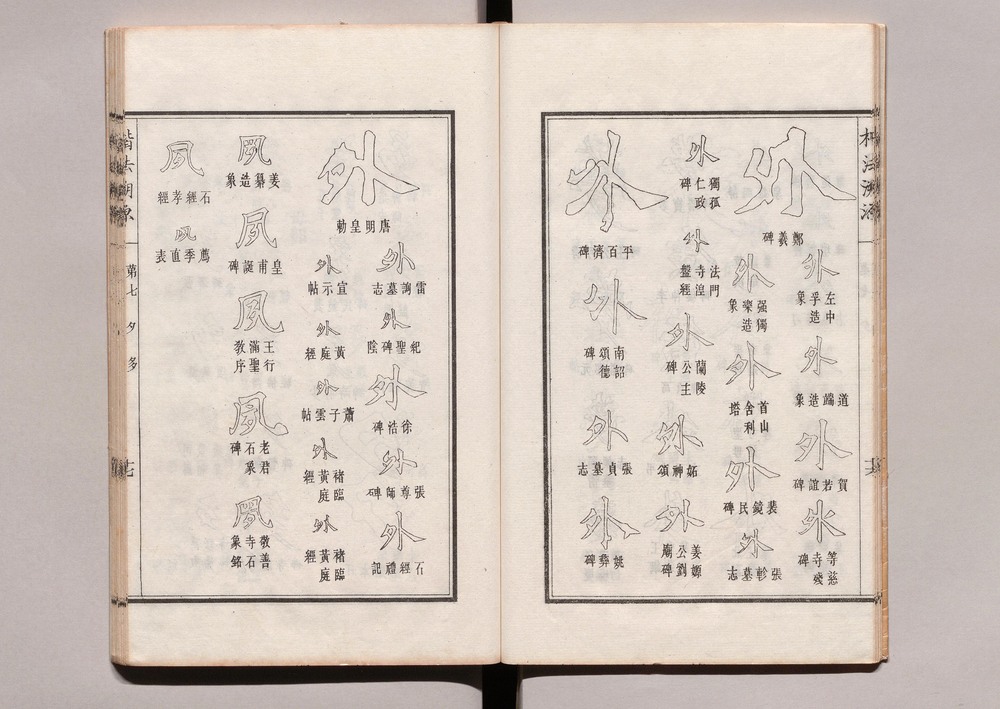 外
鄭羲碑
外
左中孚造象
外
道端造象
外
賀若誼碑
外
等慈寺殘碑
外
强獨樂造象
外
首山舍利塔
外
裴鏡民碑
外
張軫墓志
外
獨孤仁政碑
外
法門寺湟盤經
外
蘭陵公主碑
外
妬神頌
外
姜嫄公劉廟碑
外
平百濟碑
外
南詔頌德碑
外
張貞墓志
外
姚彝碑
外
唐明皇勅
外
雷詢墓志
外
紀聖碑陰
外
徐浩碑
外
張尊師碑
外
石經禮記
外
宣示帖
外
黃庭經
外
蕭子雲帖
外
褚臨黃庭經
外
褚臨黃庭經
夙
姜纂造象
夙
皇甫誕碑
夙
王行滿聖教序
夙
老君石象碑
夙
敬善寺石象銘
夙
石經孝經
夙
薦季直表
楷法溯源
第七
夕
多